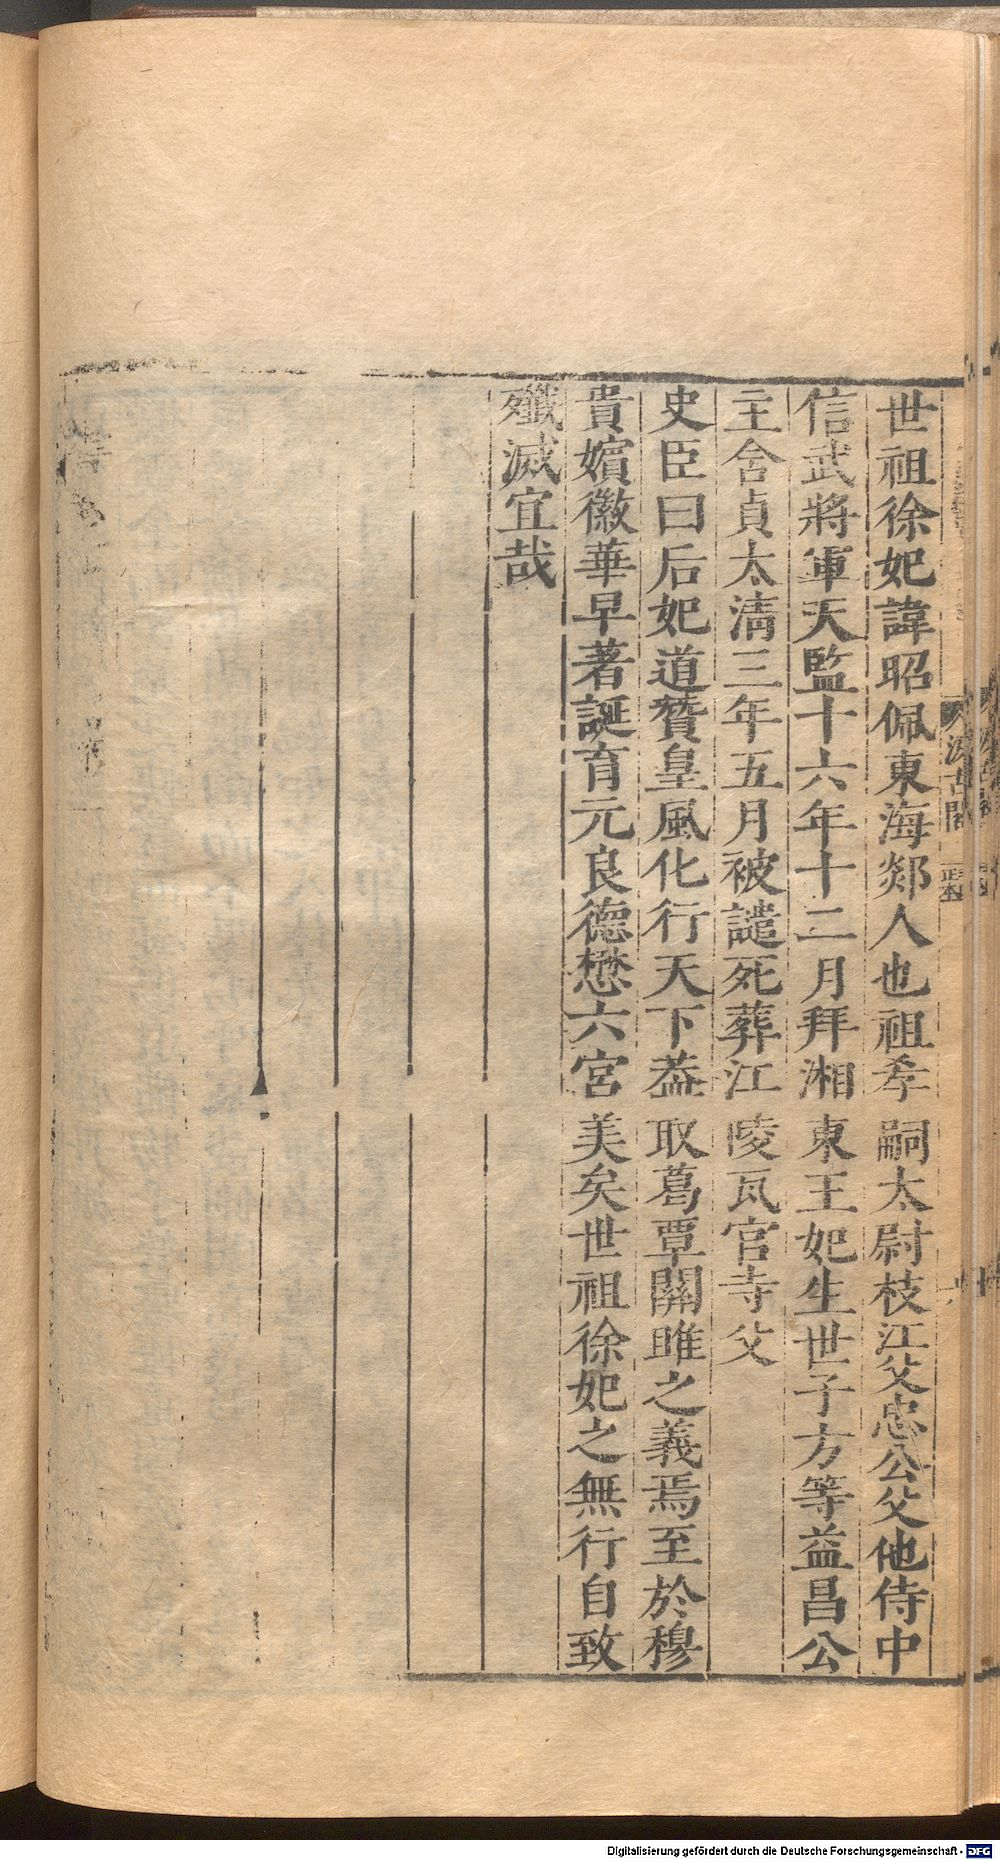 世祖徐妃諱昭佩東海郯人也祖孝嗣太尉枝江父忠公父他侍中
信武將軍天監十六年十二月拜湘東王妃生世子方等益昌公
主含貞太清三年五月被譴死葬江陵瓦官寺父
史臣曰后妃道贊皇風化行天下葢取葛覃關雎之義焉至於穆
貴嬪徽華早著誕育元良德懋六宮美矣世祖徐妃之無行自致
殲滅宜哉
汲古閣
Digitalisierung gefördert durch die Deutsche Forschungsgemeinschaft - DFG